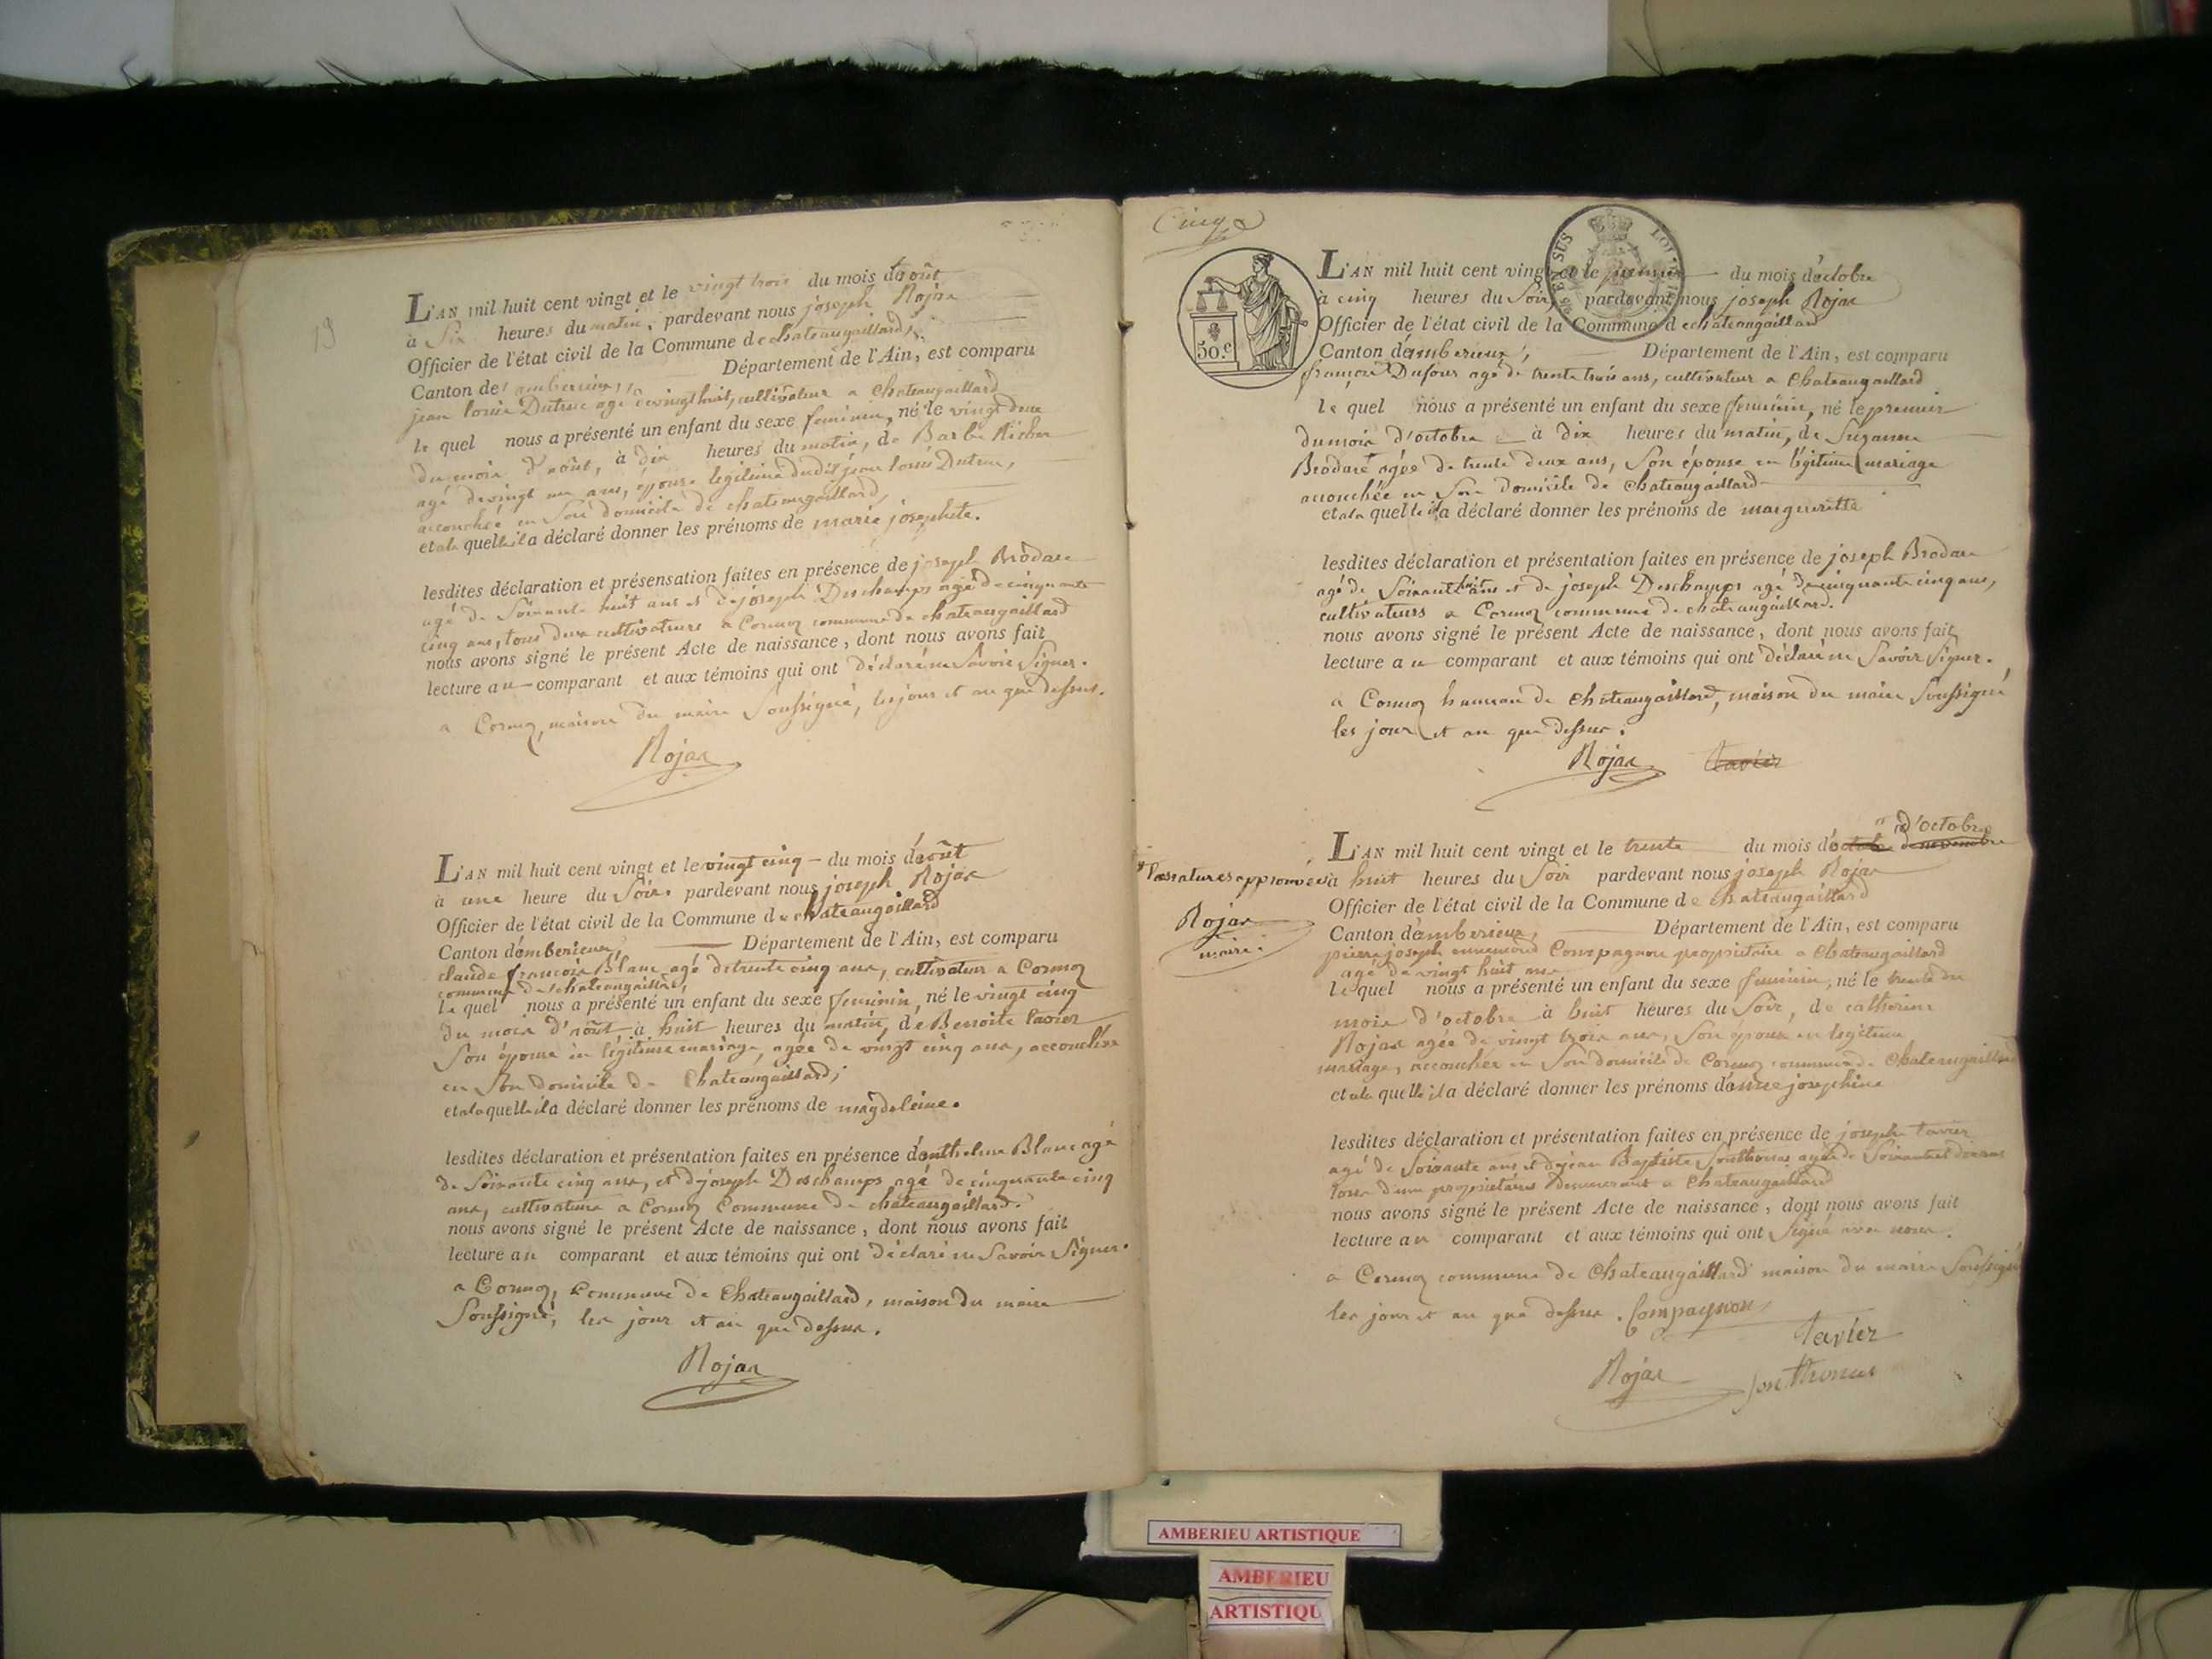 19
L'AN mil huit cent vingt et le vingt trois du mois d'août
à Six heures du matin, pardevant nous joseph Rojas
Officier de l'état civil de la Commune de chateaugaillard,
Canton d'amberieux, Département de l'Ain, est comparu
jean louis Dutruc agé de vingt huit, cultivateur a Chateaugaillard
le quel nous a présenté un enfant du sexe feminin, né le vingt deux
du mois d'août, à dix heures du matin, de Barbe
agé de vingt un ans, epouse legitime dudit jean louis Dutruc,
accouchée en Son domicile de chateaugaillard,
et a la quelle il a déclaré donner les prénoms de marie josephete.
lesdites déclaration et présensation faites en présence de joseph Brodare
agé de Soixante huit ans et de joseph Deschamps agé de cinquante
cinq ans, tous deux cultivateurs a Cormoz commune de chateaugaillard
nous avons signé le présent Acte de naissance, dont nous avons fait
lecture au comparant et aux témoins qui ont déclaré ne Savoir Signer.
a Cormoz, maison du maire Soussigné, les jour et an que dessus.
Rojas
L'AN mil huit cent vingt et le vingt cinq du mois d'août
à une heure du Soir. pardevant nous joseph Rojas
Officier de l'état civil de la Commune de chateaugaillard
Canton d'amberieux, Département de l'Ain, est comparu
claude francois Blanc agé de trente cinq ans, cultivateur a Cormoz
commune de chateaugaillard,
le quel nous a présenté un enfant du sexe feminin, né le vingt cinq
du mois d'août à huit heures du matin, de Benoite tavier
Son épouse in légitime mariage, agée de vingt cinq ans, accouchée
en Son domicile de Chateaugaillard;
et a la quelle il a déclaré donner les prénoms de magdeleine.
lesdites déclaration et présentation faites en présence d'anthelme Blanc agé
de Soixante cinq ans, et de joseph Deschamps agé de cinquante cinq
ans, cultivateurs a Cormoz Commune de chateaugaillard.
nous avons signé le présent Acte de naissance, dont nous avons fait
lecture au comparant et aux témoins qui ont déclaré ne Savoir Signer.
a Cormoz, Commune de Chateaugaillard, maison du maire
Soussigné, les jour et an que dessus.
Rojas
Cinq
50.c
L'AN mil huit cent vingt et le premier du mois d'octobre
à cinq heures du Soir, pardevant nous joseph Rojas
Officier de l'état civil de la Commune de chateaugaillard
Canton d'amberieux, Département de l'Ain, est comparu
françois Dufour agé de trente trois ans, cultivateur a Chateaugaillard
le quel nous a présenté un enfant du sexe feminin, né le premier
du mois d'octobre à dix heures du matin, de Suzanne
Brodare agée de trente deux ans, Son épouse en légitime mariage
accouchée en Son domicile de Chateaugaillard
et a la quelle il a déclaré donner les prénoms de margueritte
lesdites déclaration et présentation faites en présence de joseph Brodare
agé de Soixante huit ans et de joseph Deschamps agé de cinquante cinq ans,
cultivateurs a Cormoz commune de chateaugaillard.
nous avons signé le présent Acte de naissance, dont nous avons fait
lecture au comparant et aux témoins qui ont déclaré ne Savoir Signer.
a Cormoz hameau de Chateaugaillard, maison du maire Soussigné
les jour et an que dessus.
Rojas tavier
d'octobre
L'AN mil huit cent vingt et le trente du mois d'octobre de novembre
ratures approuvées à huit heures du Soir pardevant nous joseph Rojas
Rojas
maire
Officier de l'état civil de la Commune de chateaugaillard
Canton d'amberieux, Département de l'Ain, est comparu
pierre joseph ennemond Compagnon propriétaire a Chateaugaillard
agé de vingt huit ans
le quel nous a présenté un enfant du sexe feminin, né le trente du
mois d'octobre à huit heures du Soir, de catherine
Rojas agée de vingt trois ans, Son épouse en legitime
mariage, accouchée en Son domicile de Cormoz commune de Chateaugaillard
et a la quelle il a déclaré donner les prénoms d'anne josephine
lesdites déclaration et présentation faites en présence de joseph tavier
agé de Soixante ans et de jean Baptiste Jonthomas agé de Soixante et
tous deux propriétaires demeurant a Chateaugaillard
nous avons signé le présent Acte de naissance, dont nous avons fait
lecture au comparant et aux témoins qui ont Signé avec nous.
a Cormoz commune de Chateaugaillard maison du maire Soussigné
les jour et an que dessus. Compagnon
tavier
Rojas
AMBERIEU ARTISTIQUE
AMBERIEU
ARTISTIQU